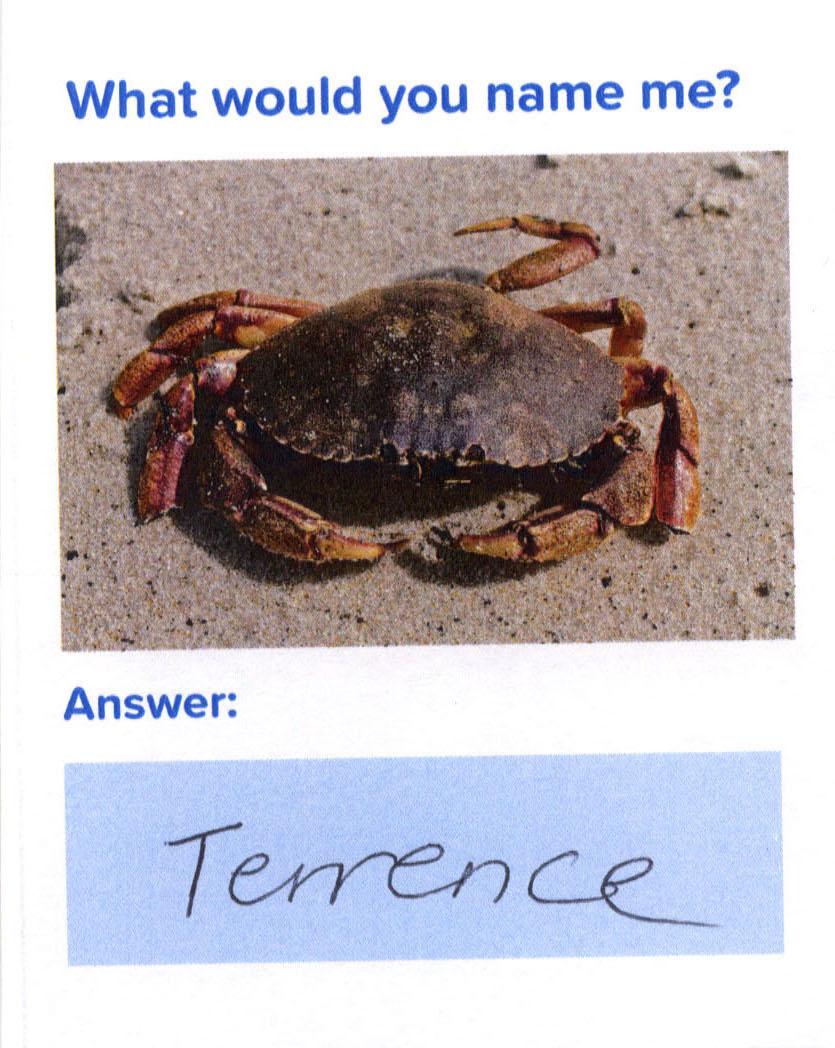 What would you name me?
Answer:
Terrence